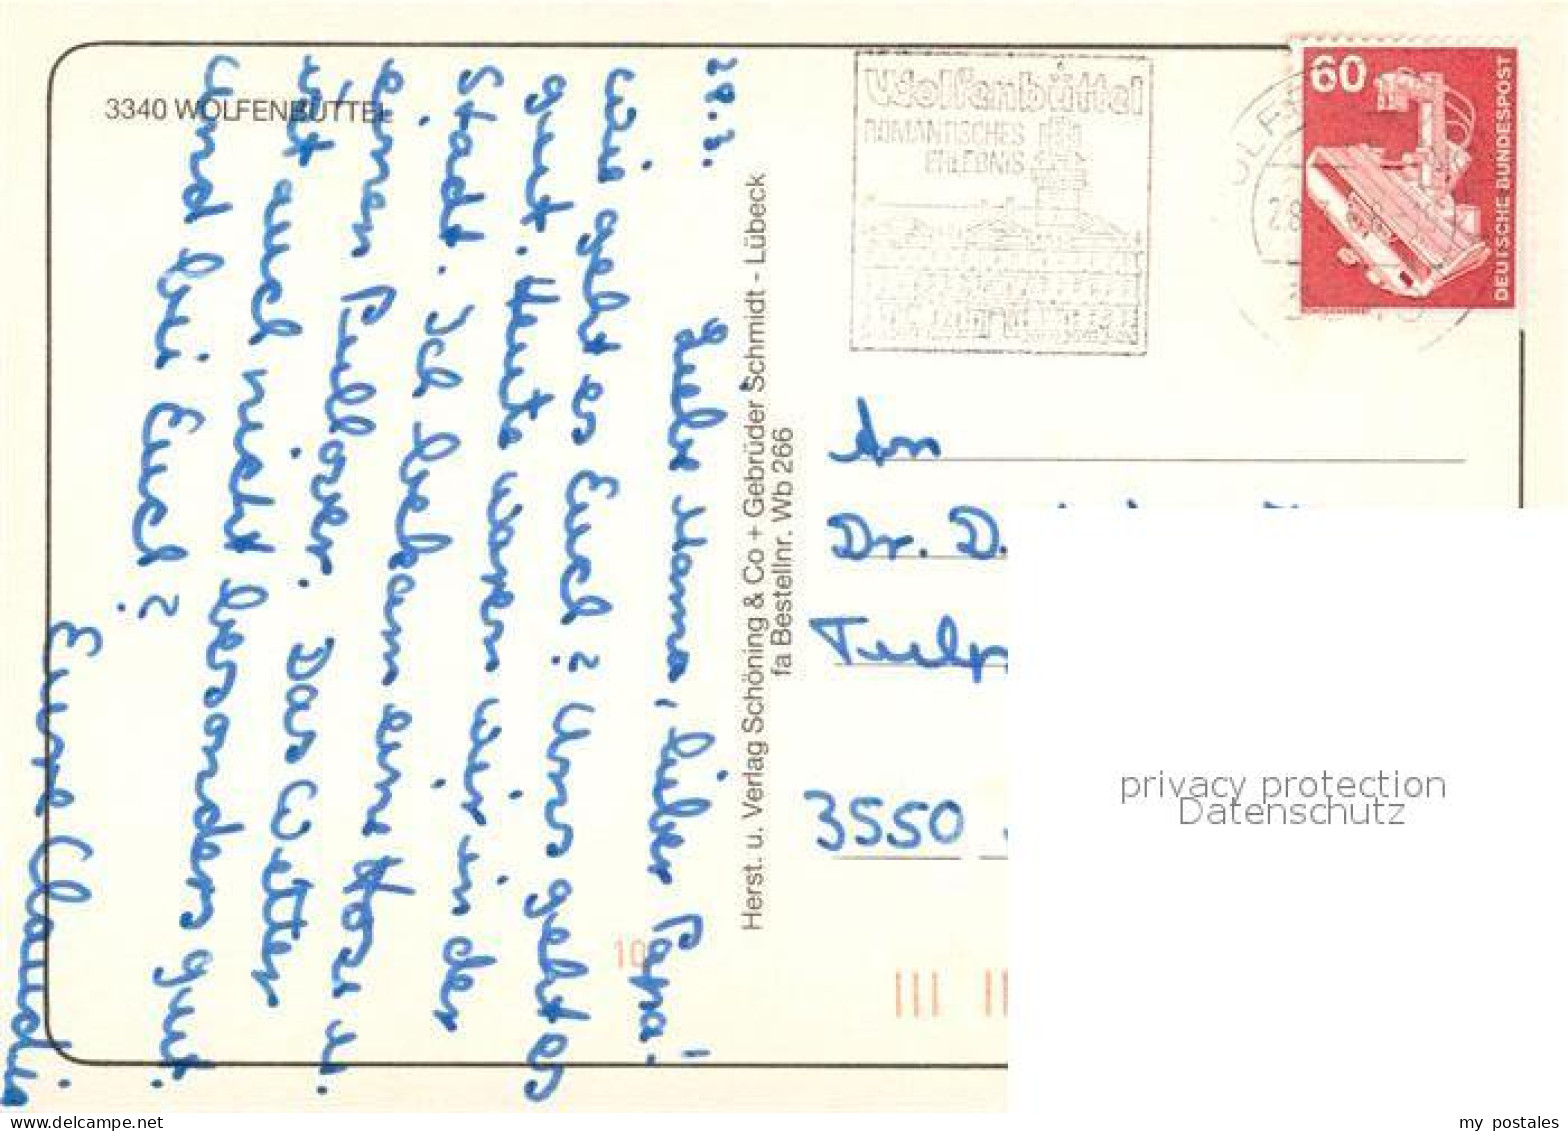 3340 WOLFENBÜTTEL
28.3.
Liebe Mama, lieber Papa!
Wie geht es Euch? Uns geht es
gut. Heute waren wir in der
Stadt. Ich bekam eine Hose u.
einen Pullover. Das Wetter
ist auch nicht besonders gut.
Und bei Euch?
Eure Claudia
Herst. u. Verlag Schöning & Co + Gebrüder Schmidt - Lübeck
fa Bestellnr. Wb 266
Wolfenbüttel
ROMANTISCHES
ERLEBNIS
60
DEUTSCHE BUNDESPOST
An
Dr. D.
3550
10
privacy protection
Datenschutz
my postales